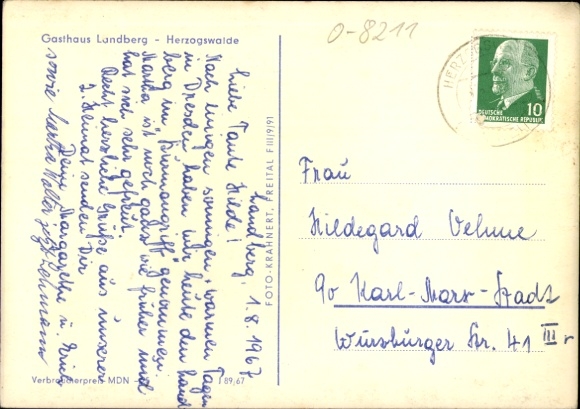 Gasthaus Landberg - Herzogswalde
O-8211
DEUTSCHE
DEMOKRATISCHE REPUBLIK
10
HERZ
Landberg, 1.8.1967
Liebe Tante Hilde!
Nach einigen sonnigen, warmen Tagen
in Dresden haben wir heute den Land
berg im "Sturmangriff" genommen.
Martha ist noch ganz wie früher und
hat sich sehr gefreut.
Recht herzliche Grüße aus unserer
2. Heimat senden Dir
Deine Margarethe u. 
sowie Martha Walter jetzt Lohmann
FOTO-KRAHNERT, FREITAL F III/9/91
Frau
Hildegard Oehme
90 Karl-Marx-Stadt
Würzburger Str. 41 III r
Verbraucherpreis MDN -
J 89/67